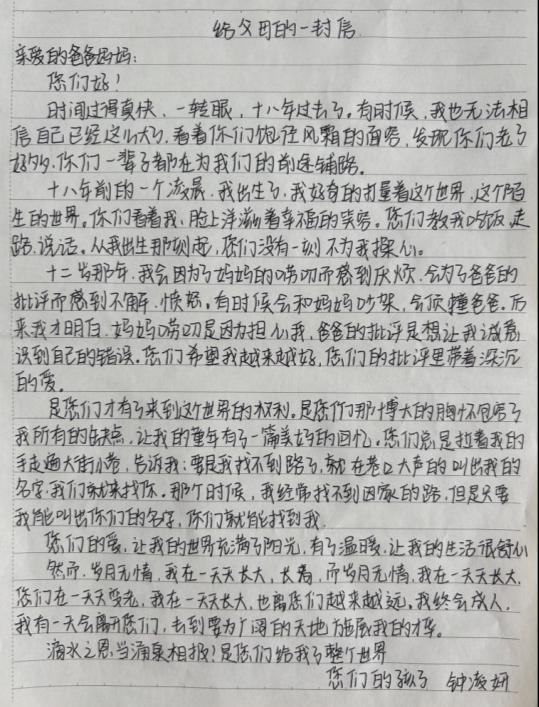 给父母的一封信
亲爱的爸爸妈妈:
您们好!
时间过得真快,一转眼,十八年过去了。有时候,我也无法相
信自己已经这么大了,看着你们饱经风霜的面容,发现你们老了
好多,你们一辈子都在为我们的前途铺路。
十八年前的一个凌晨,我出生了,我好奇的打量着这个世界,这个陌
生的世界。你们看着我,脸上洋溢着幸福的笑容。您们教我吃饭,走
路,说话。从我出生那刻起,您们没有一刻不为我操心。
十二岁那年,我会因为了妈妈的唠叨而感到厌烦,会为了爸爸的
批评而感到不解,愤怒。有时候会和妈妈吵架,会顶撞爸爸。后
来我才明白,妈妈唠叨是因为担心我,爸爸的批评是想让我诚意
识到自己的错误。您们希望我越来越好,您们的批评里带着深沉
的爱。
是您们才有了来到这个世界的权利。是您们那博大的胸怀包容了
我所有的缺点,让我的童年有了一篇美好的回忆。您们总是拉着我的
手走遍大街小巷,告诉我:要是我找不到路了,就在巷口大声的叫出我的
名字,我们就来找你。那个时候,我经常找不到回家的路,但是只要
我能叫出你们的名字,你们就能找到我。
您们的爱,让我的世界充满了阳光,有了温暖,让我的生活很舒心
然而,岁月无情,我在一天天长大,长着,而岁月无情,我在一天天长大,
您们在一天天变老,我在一天天长大,也离您们越来越远。我终会成人,
我有一天会离开您们,去到更为广阔的天地施展我的才华。
滴水之恩,当涌泉相报!是您们给我了整个世界
您们的孩子 钟凌妍